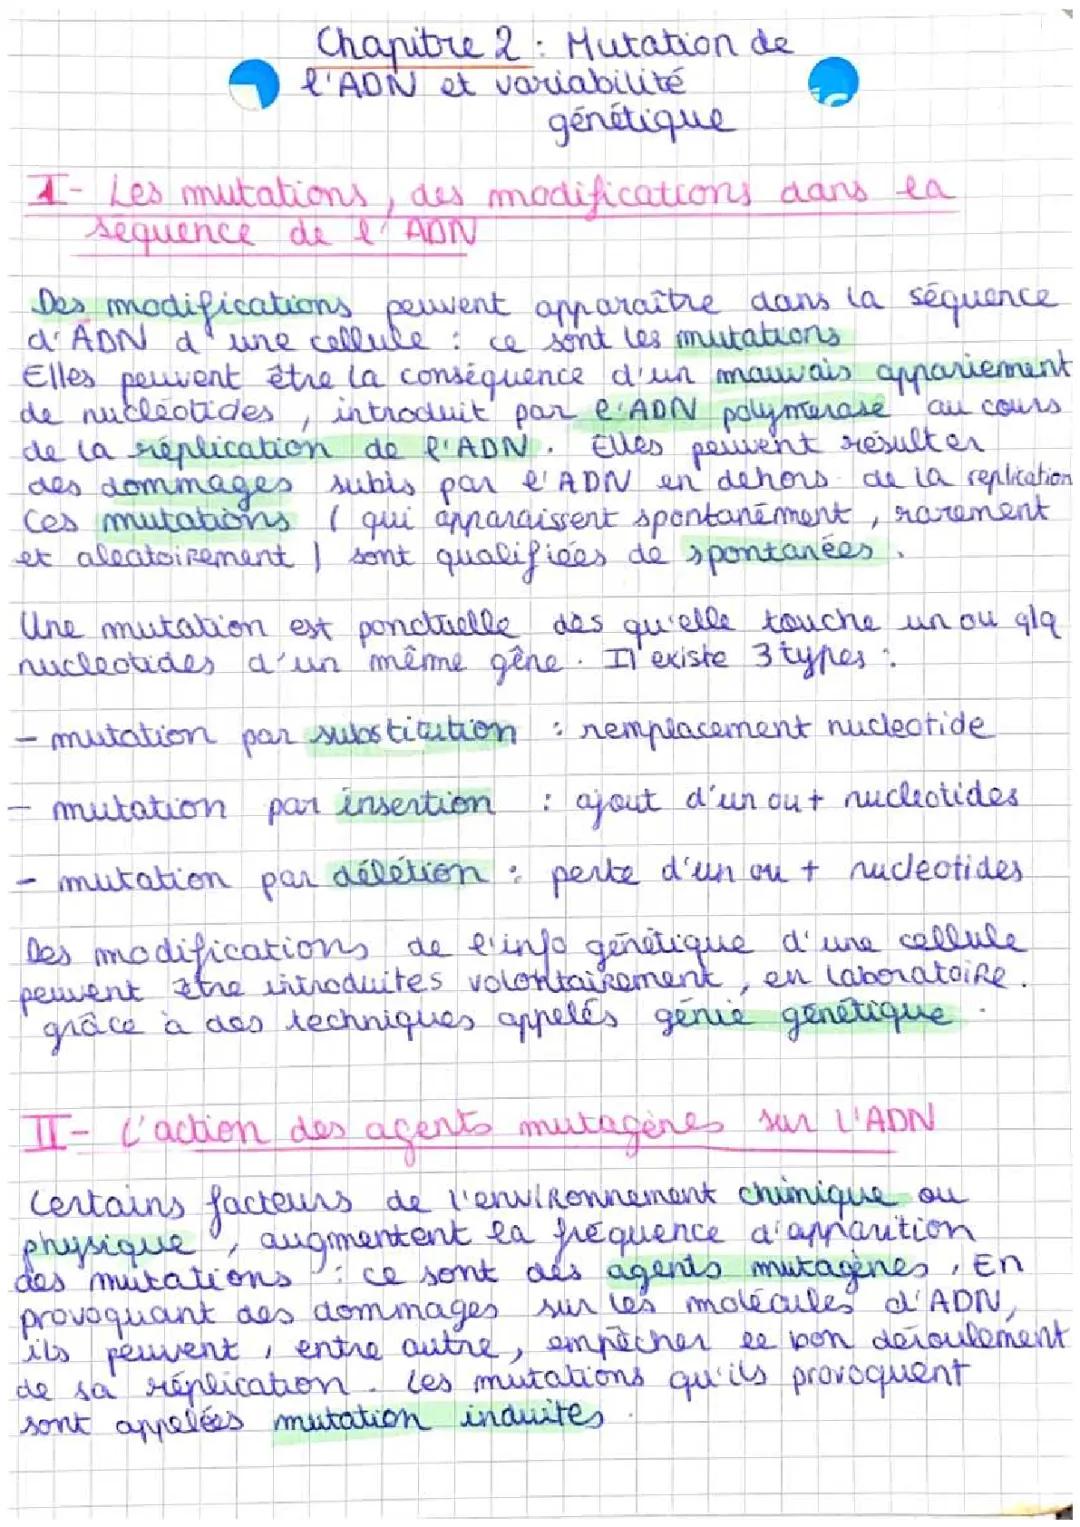 Chapitre 2 : Mutation de
l'ADN et variabilité
génétique
I- Les mutations, des modifications dans la
séquence de l'ADN
Des modifications peuvent apparaître dans la séquence
d'ADN d'une cellule : ce sont les mutations
Elles peuvent être la conséquence d'un mauvais appariement
de nucléotides, introduit par l'ADN polymérase au cours
de la réplication de l'ADN. Elles peuvent résulter
des dommages subis par l'ADN en dehors de la replication
Ces mutations ( qui apparaissent spontanément, rarement
et aleatoirement ) sont qualifiées de spontanées.
Une mutation est ponctuelle dès qu'elle touche un ou qlq
nucleotides d'un même gêne. Il existe 3 types :
- mutation par substitution : remplacement nucleotide
- mutation par insertion : ajout d'un ou + nucleotides
- mutation par délétion : perte d'un ou + nucleotides
Des modifications de l'info génétique d'une cellule
peuvent être introduites volontairement, en laboratoire.
grâce à des techniques appelés génie génétique.
II- L'action des agents mutagènes sur l'ADN
Certains facteurs de l'environnement chimique ou
physique, augmentent la fréquence d'apparition
des mutations : ce sont des agents mutagènes. En
provoquant des dommages sur les molécules d'ADN,
ils peuvent, entre autre, empêcher le bon déroulement
de sa réplication. Les mutations qu'ils provoquent
sont appelées mutation induites.